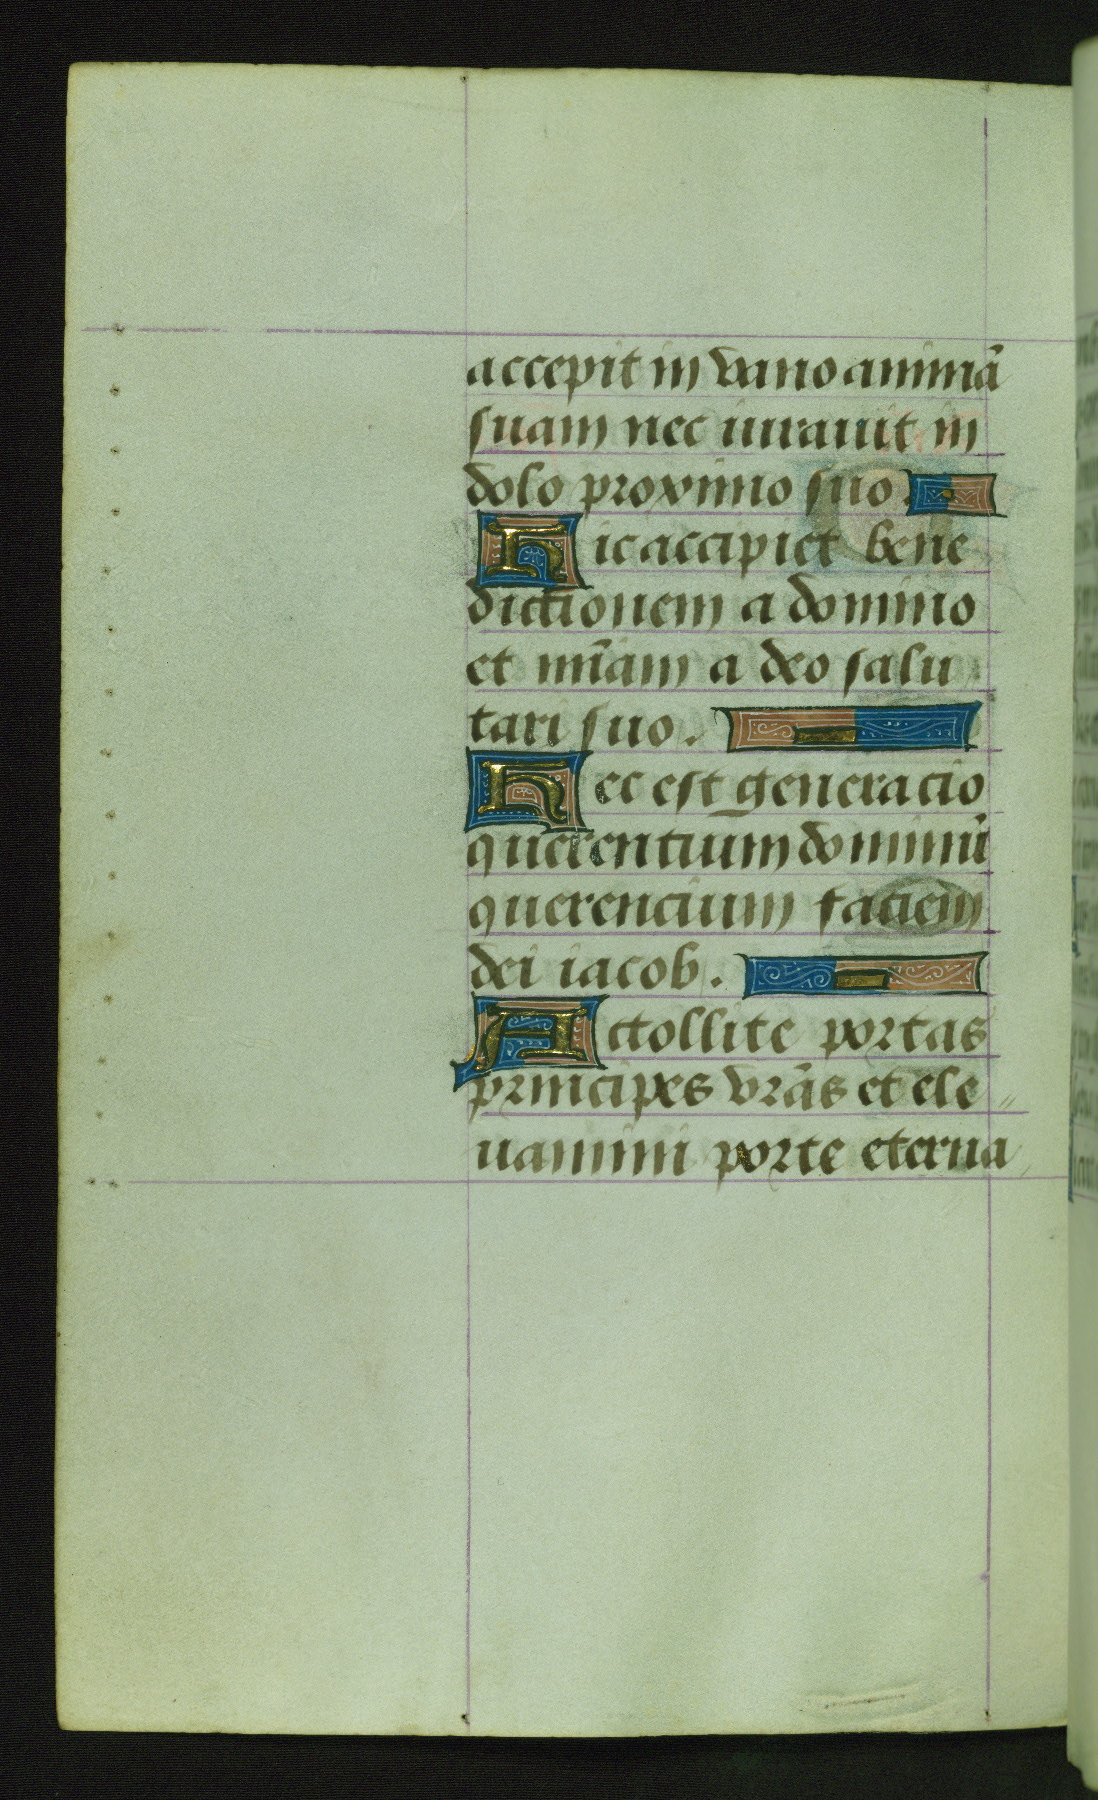 accepit in vano animā
suam nec iurauit in
dolo proximo suo.
Hic accipiet bene
dictionem a domino
et mīam a deo salu
tari suo.
Hec est generacio
querentium dominū
querencium faciem
dei iacob.
Actollite portas
principes vrās et ele
uamini porte eterna